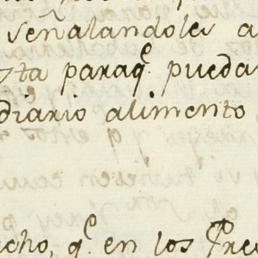 señalandoles a
sta paraq.e pueda
diario alimento
cho, q.e en los Pre